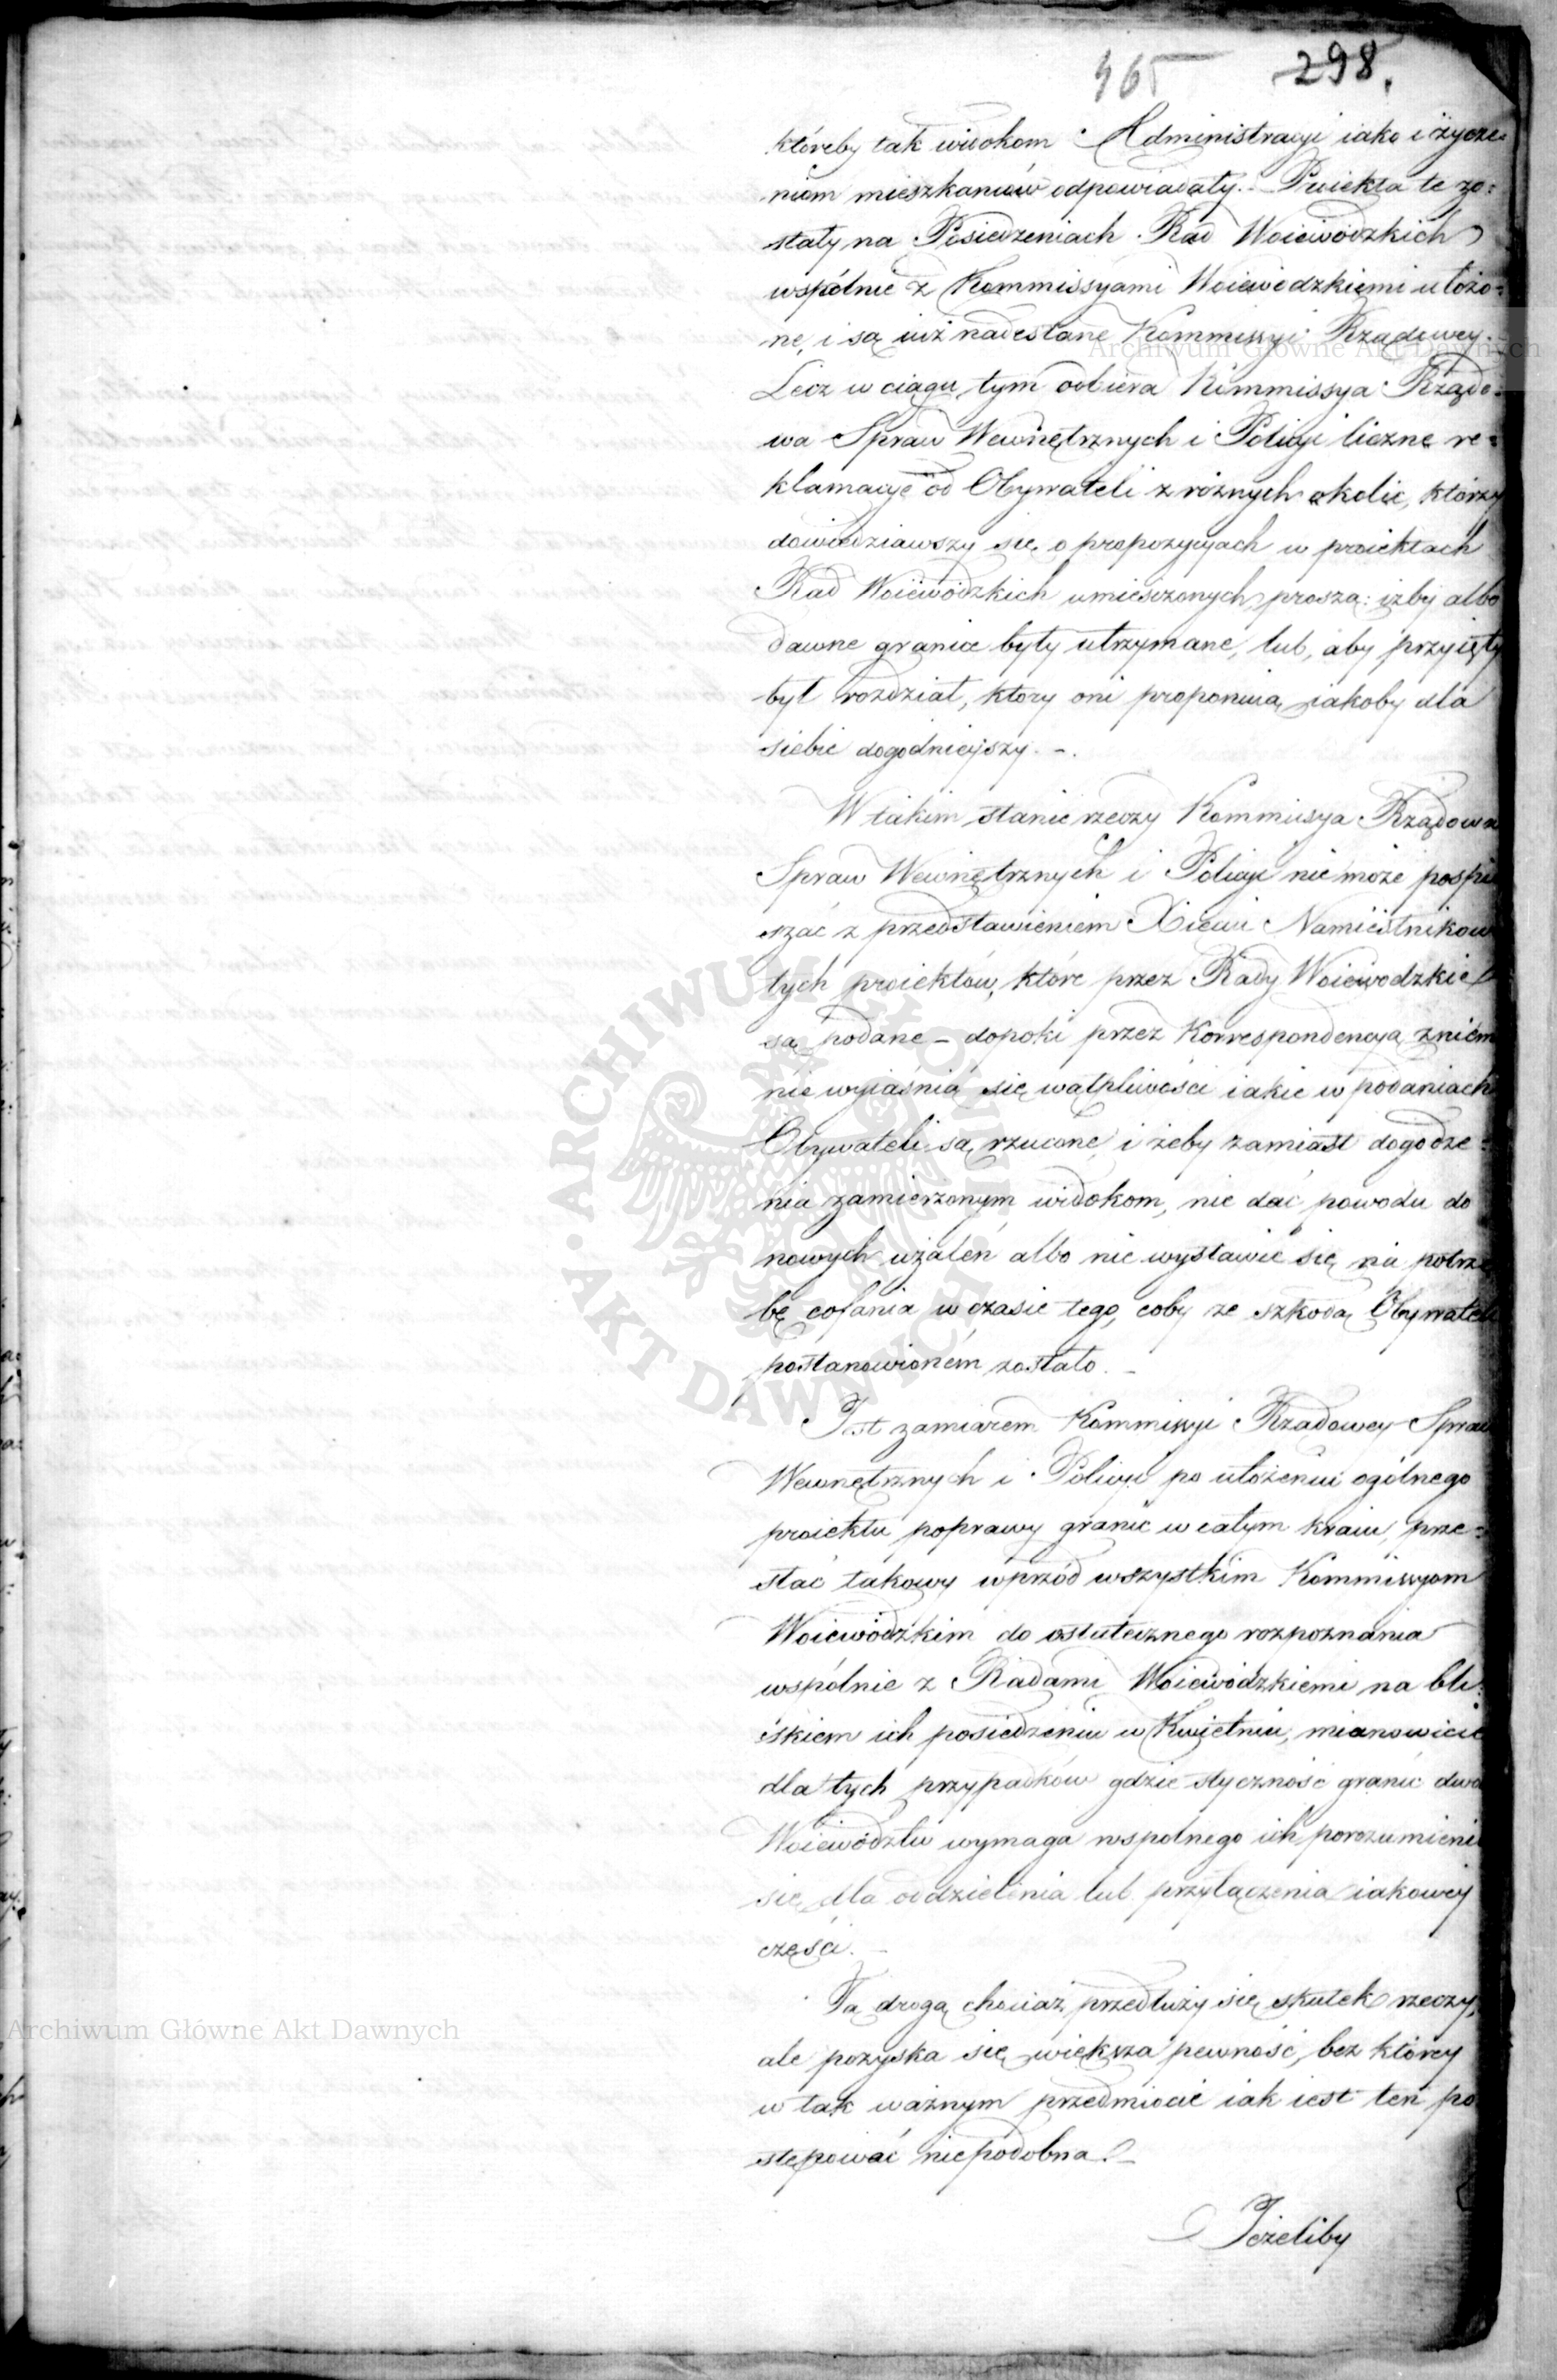 465 298.
któreby tak widokom Administracyi iako i życze=
niom mieszkańców odpowiadały. Proiekta te zo=
stały na Posiedzeniach Rad Woiewodzkich
wspólnie z Kommissyami Woiewodzkiemi ułożo=
ne, i są iuż nadesłane Kommissyi Rządowey.
Lecz w ciągu tym odbiera Kommissya Rządo=
wa Spraw Wewnętrznych i Policyi liczne re=
klamacye od Obywateli z róźnych okolic, którzy
dowiedziawszy się o propozycyach w proiektach
Rad Woiewodzkich umieszczonych, proszą: iżby albo
dawne granice były utrzymane, lub, aby przyięty
był rozdział, ktory oni proponuią iakoby dla
siebie dogodnieyszy. –.
W takim stanie rzeczy Kommissya Rządowa
Spraw Wewnętrznych i Policyi nie może pospie
szać z przedstawieniem Xięciu Namiestnikow
tych proiektów, które przez Rady Woiewodzkie
są podane – dopoki przez Korrespondencyą z niem
nie wyiaśnią się wątpliwości iakie w podaniach
Obywateli są rzucone, i żeby zamiast dogodze=
nia zamierzonym widokom, nie dać powodu do
nowych użaleń albo nie wystawić się na potrze
bę cofania w czasie tego, coby ze szkodą Obywateli
postanowioném zostało. –
Jest zamiarem Kommissyi Rządowey Spraw
Wewnętrznych i Policyi po ułożeniu ogólnego
proiektu poprawy granic w całym kraiu, prze=
słać takowy wprzód wszystkim Kommissyom
Woiewódzkim do ostatecznego rozpoznania
wspólnie z Radami Woiewódzkiemi na bli=
skiem ich posiedzeniu w Kwietniu, mianowicie
dla tych przypadków gdzie styczność granic dwó
Woiewództw wymaga wspolnego ich porozumieni
się dla oddzielenia lub przyłączenia iakowey
części. –
Tą drogą chociaż przedłuży się skutek rzeczy,
ale pozyska się większa pewność, bez którey
w tak ważnym przedmiocie iak iest ten po
stępować niepodobna. –
Jeżeliby
Archiwum Główne Akt Dawnych
Archiwum Główne Akt Dawnych
ARCHIWUM GŁÓWNE • AKT DAWNYCH •